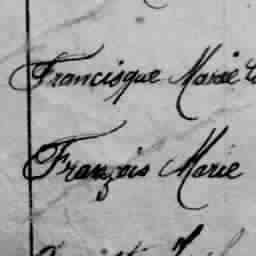 Francisque Marie
François Marie